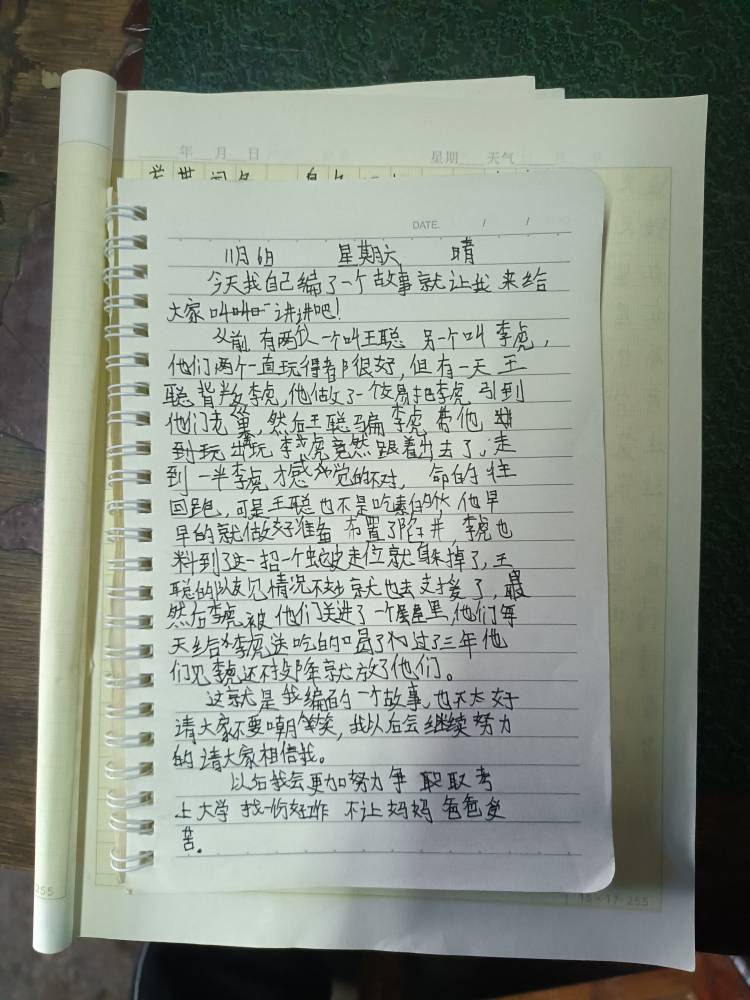 年 月 日 星期 天气
DATE. / /
11月6日 星期六 晴
今天我自己编了一个故事就让我来给
大家 讲讲吧!
从前有两 一个叫王聪 另一个叫李虎,
他们两个一直玩得都很好,但有一天王
聪背叛李虎,他做了一个交易把李虎引到
他们老巢,然后王聪骗李虎带他
到玩 出玩李虎竟然跟着出去了,走
到一半李虎才感觉的不对, 命的往
回跑,可是王聪也不是吃素的 他早
早的就做好准备 布置了陷井,李虎也
料到了这一招一个蛇皮走位就躲掉了,王
聪的队友见情况不妙就也去支援了,最
然后李虎被他们关进了一个屋里,他们每
天给李虎送吃的口喝了 过了三年他
们见李虎还不投降就放了他们。
这就是我编的一个故事,也不太好
请大家不要嘲笑,我以后会继续努力
的请大家相信我。
以后我会更加努力争 取考
上大学找一份好工作 不让妈妈爸爸受
苦。
255
15·17·255